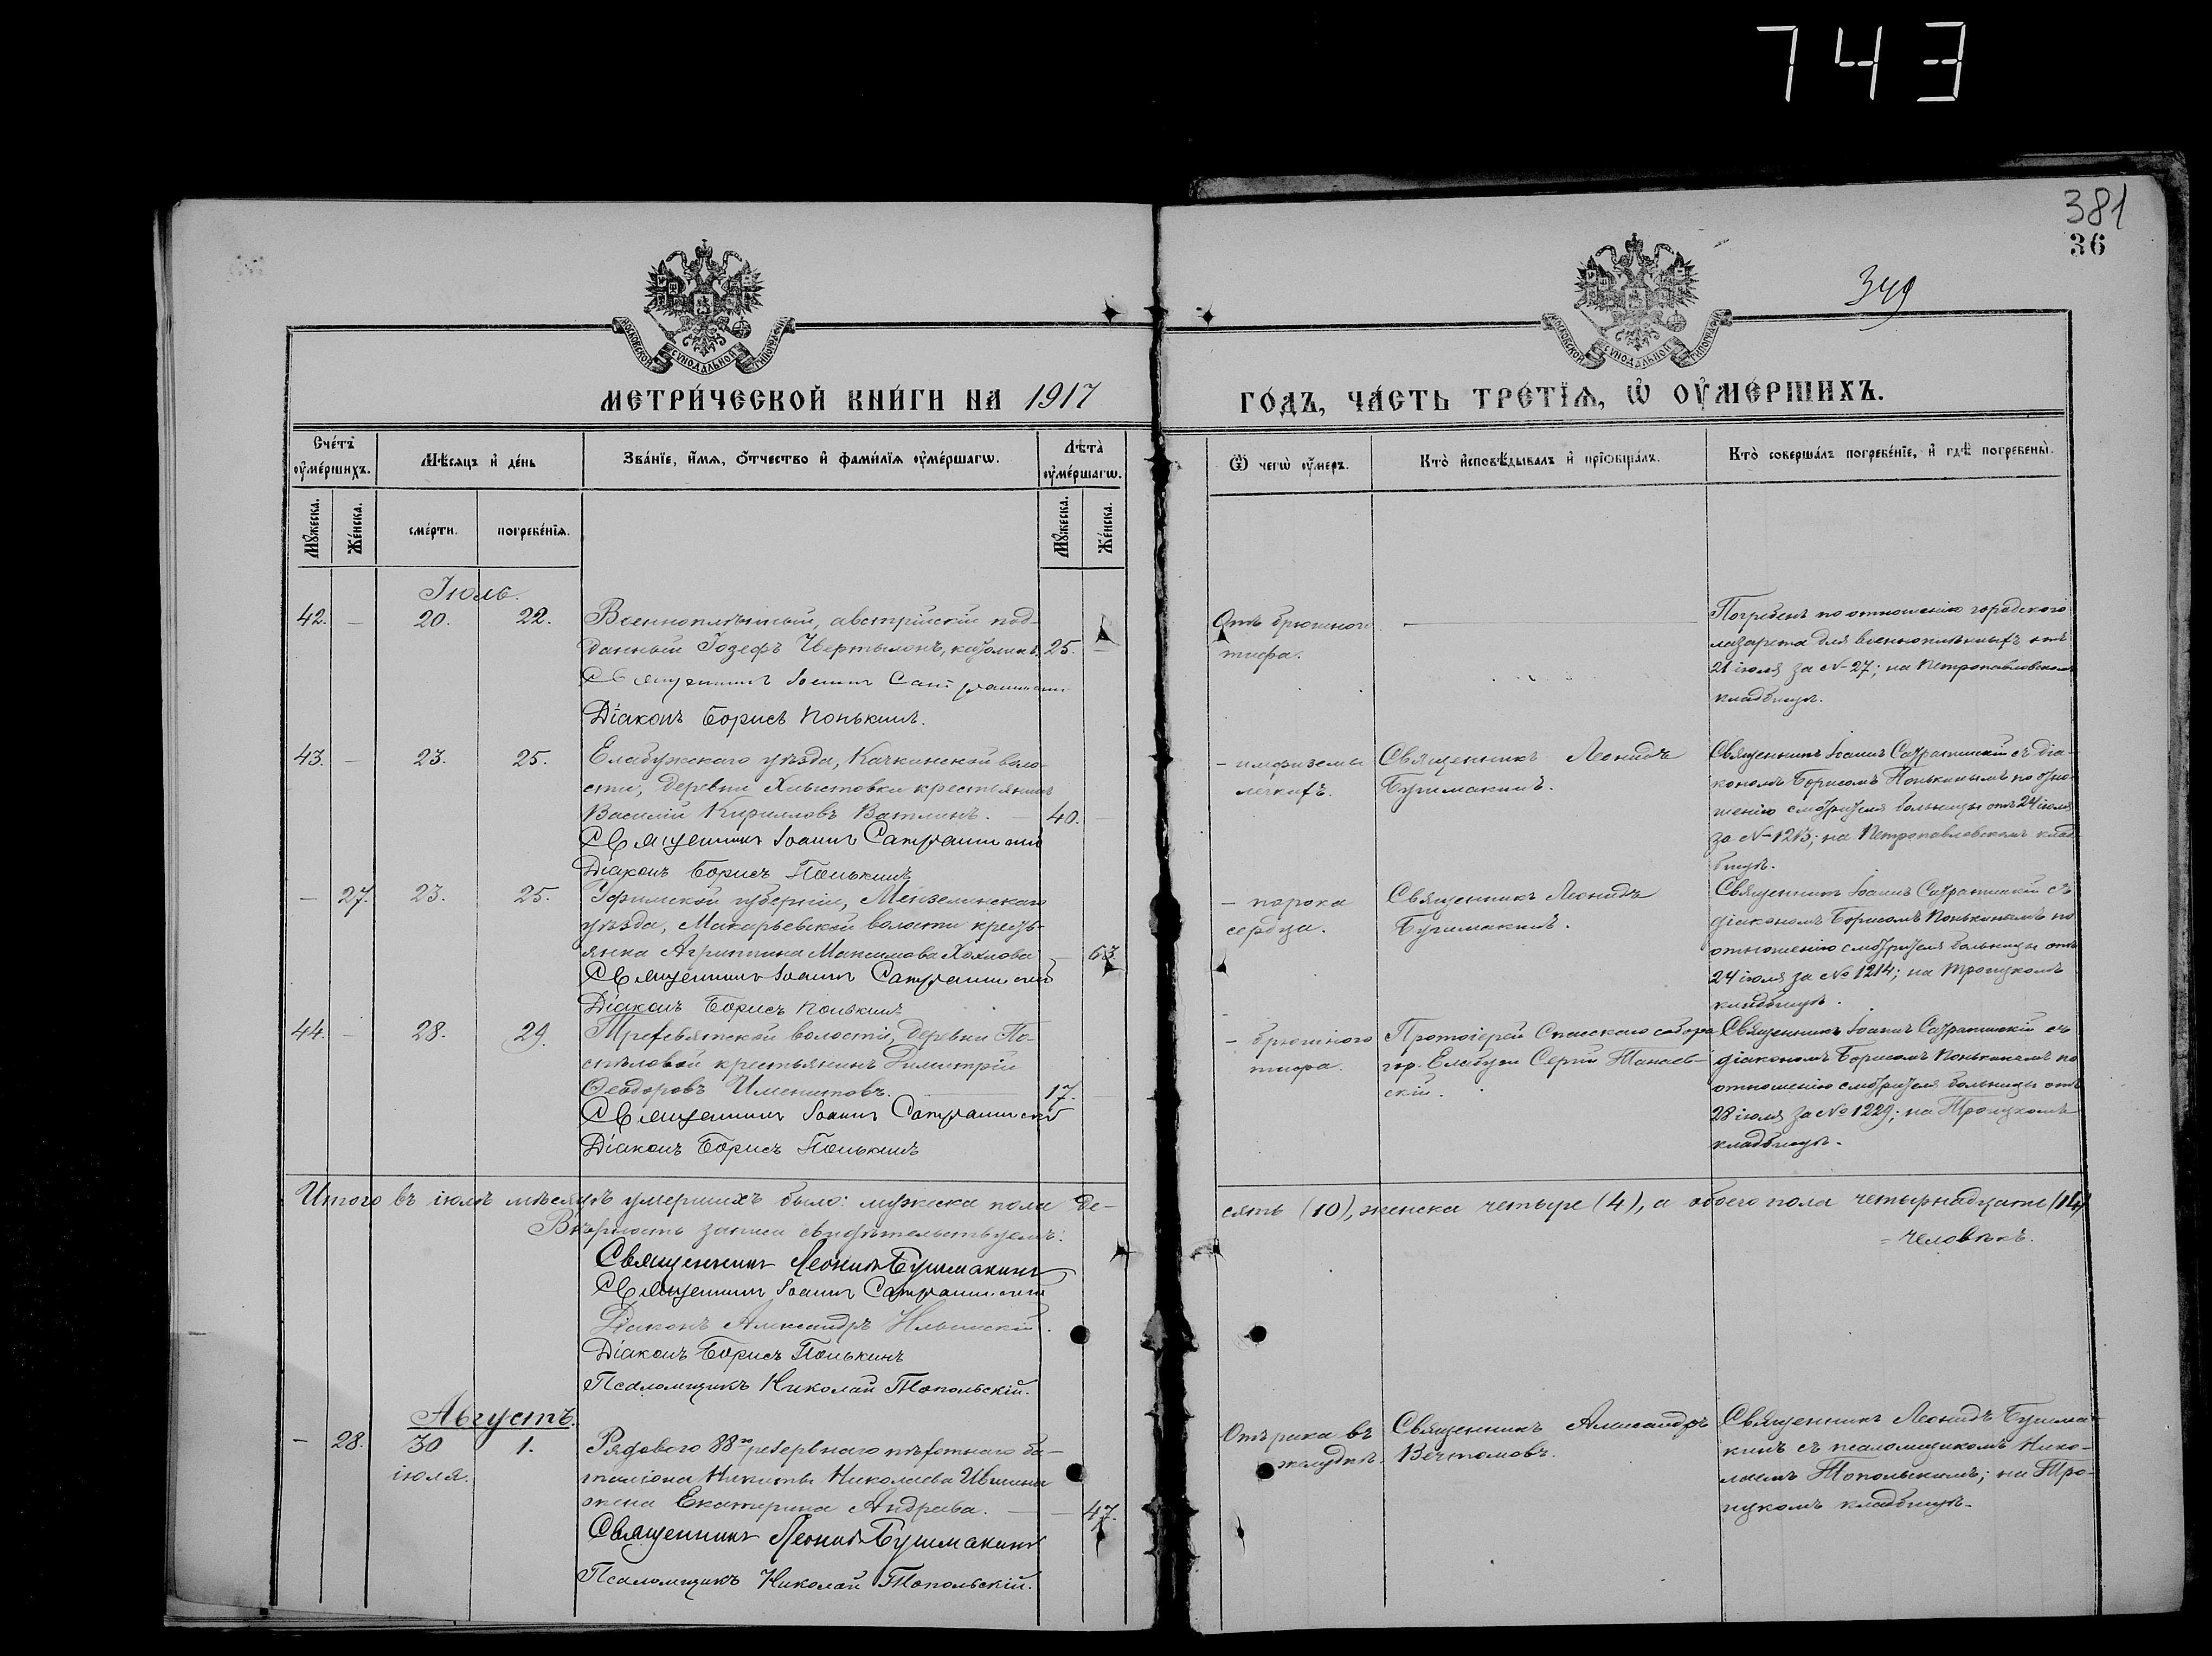 743
381
36
349
МОСКОВСКОЙ СѴНОДАЛЬНОЙ ТИПОГРАФІИ
МОСКОВСКОЙ СѴНОДАЛЬНОЙ ТИПОГРАФІИ
МЕТРИ́ЧЕСКОЙ КНИ́ГИ НА 1917
ГО́ДЪ, ЧА́СТЬ ТРЕ́ТЇѦ, Ѽ ОУ҆МЕ́РШИХЪ.
Сче́тъ оу҆ме́ршихъ.
Мѣ́сяцъ и҆ де́нь
Зва́нїе, и҆́мѧ, ѻ҆́тчество и҆ фами́лїѧ оу҆ме́ршагѡ.
Лѣ́та оу҆ме́ршагѡ.
Ѿ чегѡ̀ оу҆́меръ.
Кто̀ и҆сповѣ́дывалъ и҆ прїѡбща́лъ.
Кто̀ соверша́лъ погребе́нїе, и҆ гдѣ̀ погребены̀.
Мꙋ́жеска.
Же́нска.
сме́рти.
погребе́нїѧ.
Мꙋ́жеска.
Же́нска.
Іюль.
42. — 20. 22.
Военноплѣнный, австрійскій под-
данный Іозефъ Чвертылонъ, католикъ, 25. —
Священникъ Іоаннъ Сатрапинскій
Діаконъ Борисъ Понькинъ.
Отъ брюшного
тифа.
—
Погребенъ по отношенію городского
лазарета для военноплѣнныхъ отъ
21 іюля за №27; на Петропавловскомъ
кладбищѣ.
43. — 23. 25.
Елабужскаго уѣзда, Качкинской воло-
сти, деревни Хлыстовки крестьянинъ
Василій Кирилловъ Ватлинъ. — 40. —
Священникъ Іоаннъ Сатрапинскій
Діаконъ Борисъ Понькинъ
- эмфиземы
легкихъ.
Священникъ Леонидъ
Бушмакинъ.
Священникъ Іоаннъ Сатрапинскій съ діа-
кономъ Борисомъ Понькинымъ по отно-
шенію смотрителя больницы отъ 24 іюля
за №1213; на Петропавловскомъ клад-
бищѣ.
— 27. 23. 25.
Уфимской губерніи, Мензелинскаго
уѣзда, Макарьевской волости кресть-
янка Агриппина Максимова Хохлова — 63.
Священникъ Іоаннъ Сатрапинскій
Діаконъ Борисъ Понькинъ
- порока
сердца.
Священникъ Леонидъ
Бушмакинъ.
Священникъ Іоаннъ Сатрапинскій съ
діакономъ Борисомъ Понькинымъ по
отношенію смотрителя больницы отъ
24 іюля за №1214; на Троицкомъ
кладбищѣ.
44. — 28. 29.
Трехсвятской волости, деревни По-
спѣловой крестьянинъ Димитрій
Ѳеодоровъ Именитовъ. — 17. —
Священникъ Іоаннъ Сатрапинскій
Діаконъ Борисъ Понькинъ
- брюшного
тифа.
Протоіерей Спасскаго собора
гор. Елабуги Сергій Танаев-
скій.
Священникъ Іоаннъ Сатрапинскій съ
діакономъ Борисомъ Понькинымъ по
отношенію смотрителя больницы отъ
28 іюля за №1229; на Троицкомъ
кладбищѣ.
Итого въ іюлѣ мѣсяцѣ умершихъ было: мужеска пола де-
сять (10), женска четыре (4), а обоего пола четырнадцать (14)
= человѣкъ.
Вѣрность записи свидѣтельствуемъ:
Священникъ Леонидъ Бушмакинъ
Священникъ Іоаннъ Сатрапинскій
Діаконъ Александръ Ильинскій.
Діаконъ Борисъ Понькинъ
Псаломщикъ Николай Топольскій.
Августъ.
— 28. 30 1.
іюля.
Рядового 88го резервнаго пѣхотнаго ба-
таліона Никиты Николаева Ившина
жена Екатерина Андреева. — 47.
Священникъ Леонидъ Бушмакинъ
Псаломщикъ Николай Топольскій.
Отъ рака въ
желудкѣ.
Священникъ Александръ
Вечтомовъ.
Священникъ Леонидъ Бушма-
кинъ съ псаломщикомъ Нико-
лаемъ Топольскимъ; на Тро-
ицкомъ кладбищѣ.